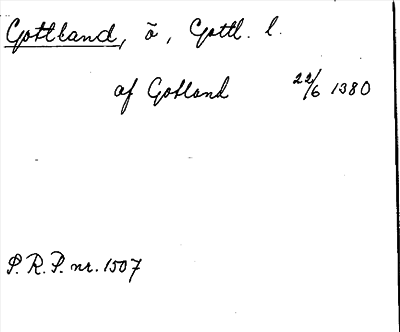 Gottland, ö, Gottl. l.
af Gotland 22/6 1380
P. R. P. nr. 1507